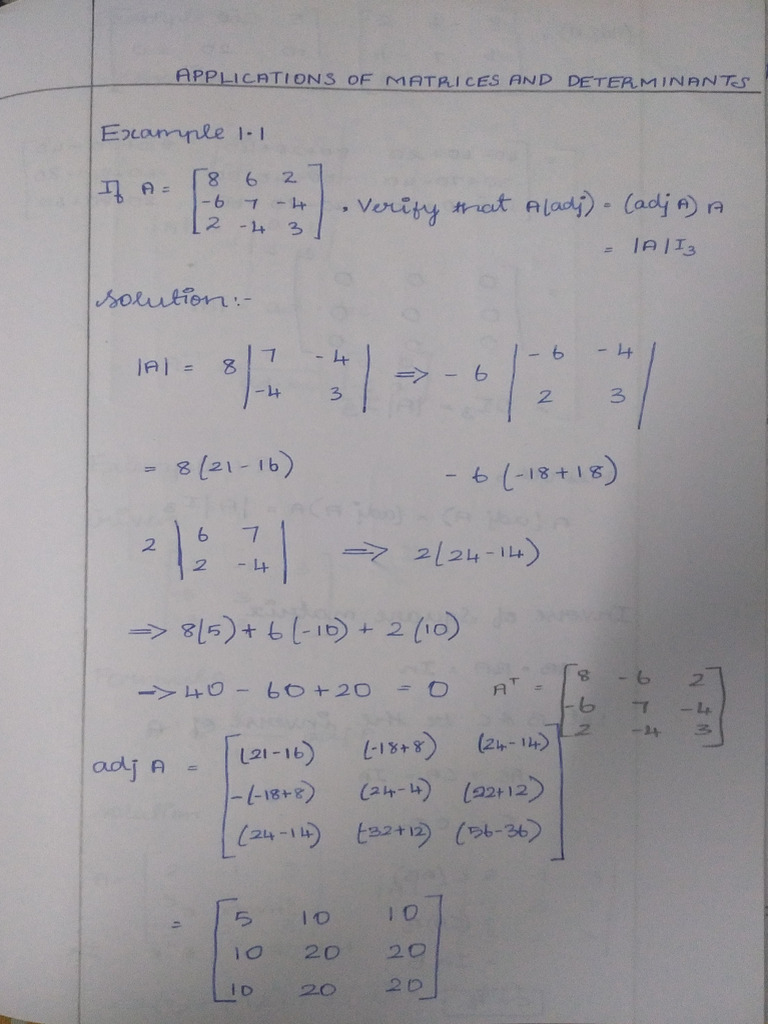 APPLICATIONS OF MATRICES AND DETERMINANTS
Example 1.1
If A = [8 6 2
-6 7 -4
2 -4 3]. Verify that A(adj) = (adj A) A
= |A| I₃
Solution:-
|A| = 8 |7 -4
-4 3| => - 6 |-6 -4
2 3|
= 8(21-16) - 6 (-18+18)
2 |6 7
2 -4| => 2(24-14)
=> 8(5)+6(-10)+2(10)
-> 40 - 60 + 20 = 0
Aᵀ = [8 -6 2
-6 7 -4
2 -4 3]
adj A = [(21-16) (-18+8) (24-14)
-(-18+8) (24-4) (22+12)
(24-14) (-32+12) (56-36)]
= [5 10 10
10 20 20
10 20 20]